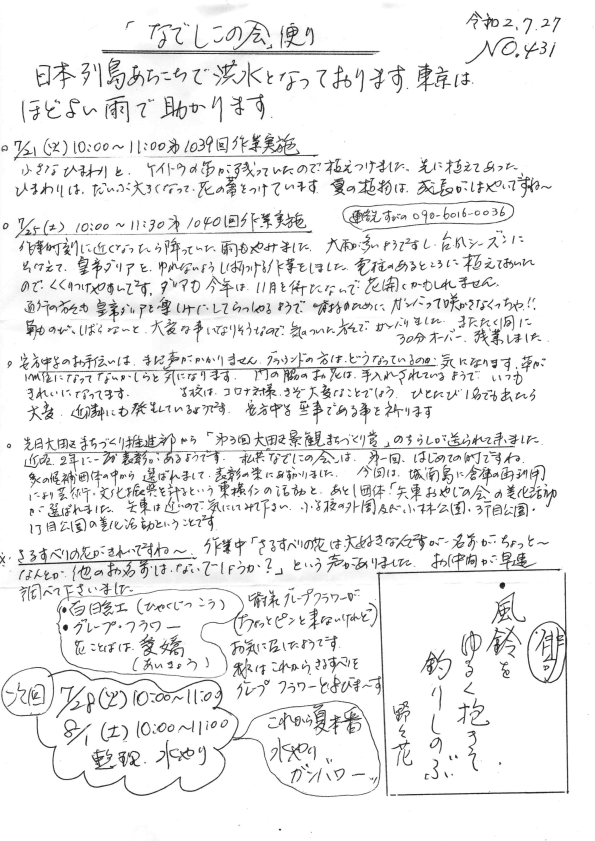 「なでしこの会」便り
令和2.7.27
NO.431
日本列島あちこちで洪水となっております。東京は
ほどよい雨で助かります。
○7/21(火)10:00〜11:00第1039回作業実施
小さなひまわりと、ケイトウの苗が残っていたので植えつけました。先に植えてあった
ひまわりは、だいぶ大きくなって花の蕾をつけています。夏の植物は、成長がはやいですね〜
○7/25(土)10:00〜11:30第1040回作業実施
連絡すがの090-6016-0036
作業時刻に近くなったら降っていた雨もやみました。大雨が多いようですし、台風シーズンに
そなえて、皇帝ダリアと、ゆれないようしばりつける作業をしました。電柱のあるところに植えておいた
ので、くくりつけやすいです。ダリアも今年は、11月を待たないで花開くかもしれません。
通行の方も皇帝ダリアを楽しみにしてらっしゃるようで
大変な事になりそうなので、気のついた方で、がんばりました。またたく間に
30分オーバー、残業しました。
○安方中学のお手伝いは、まだ声がかかりません。グラウンドの方は、どうなっているのか気になります。草が
1m位になってないかしらと気になります。門の脇のお花は、手入れされているようで、いつも
きれいになってます。学校は、コロナ対様、さぞ大変なことでしょう。ひとたび1名でも出たら
大変。近隣にも発生しているようです。安方中学無事である事を祈ります
○先日大田区まちづくり推進部から「第3回大田区景観まちづくり賞」のちらしが送られて来ました。
近近2年に一度表彰があるようです。私共なでしこの会は、第一回、はじめての時ですね。
多くの候補団体の中から選ばれまして、表彰の栄にあずかりました。今回は、城南島に倉庫の再利用
により芸術・文化振興を計るという東横インの活動と、あと1団体「矢東おやじの会」の美化活動
が選ばれました。矢東は近いので気にしてみて下さい。小学校の外周及び小林公園・3丁目公園・
1丁目公園の美化活動ということです。
※さるすべりの花がきれいですね〜。作業中「さるすべりの花は大好きなんですが名前が、ちょっと〜
なんとか、他のお名前は、ないでしょうか?」という声がありました。お仲間が早速
調べて下さいました
・百日紅(ひゃくじつこう)
・グレープ・フラワー
花ことばは、愛嬌
(あいきょう)
皆様グレープフラワーが
(ちょっとピンと来ないけれど)
お気に召したようです。
私はこれからさるすべりを
グレープフラワーとよびま〜す
次回
7/28(火)10:00〜11:00
8/1(土)10:00〜11:00
整理、水やり
これから夏本番
水やり
ガンバワーッ
俳句
・風鈴を
ゆるく抱きて
釣りしのぶ
野々花